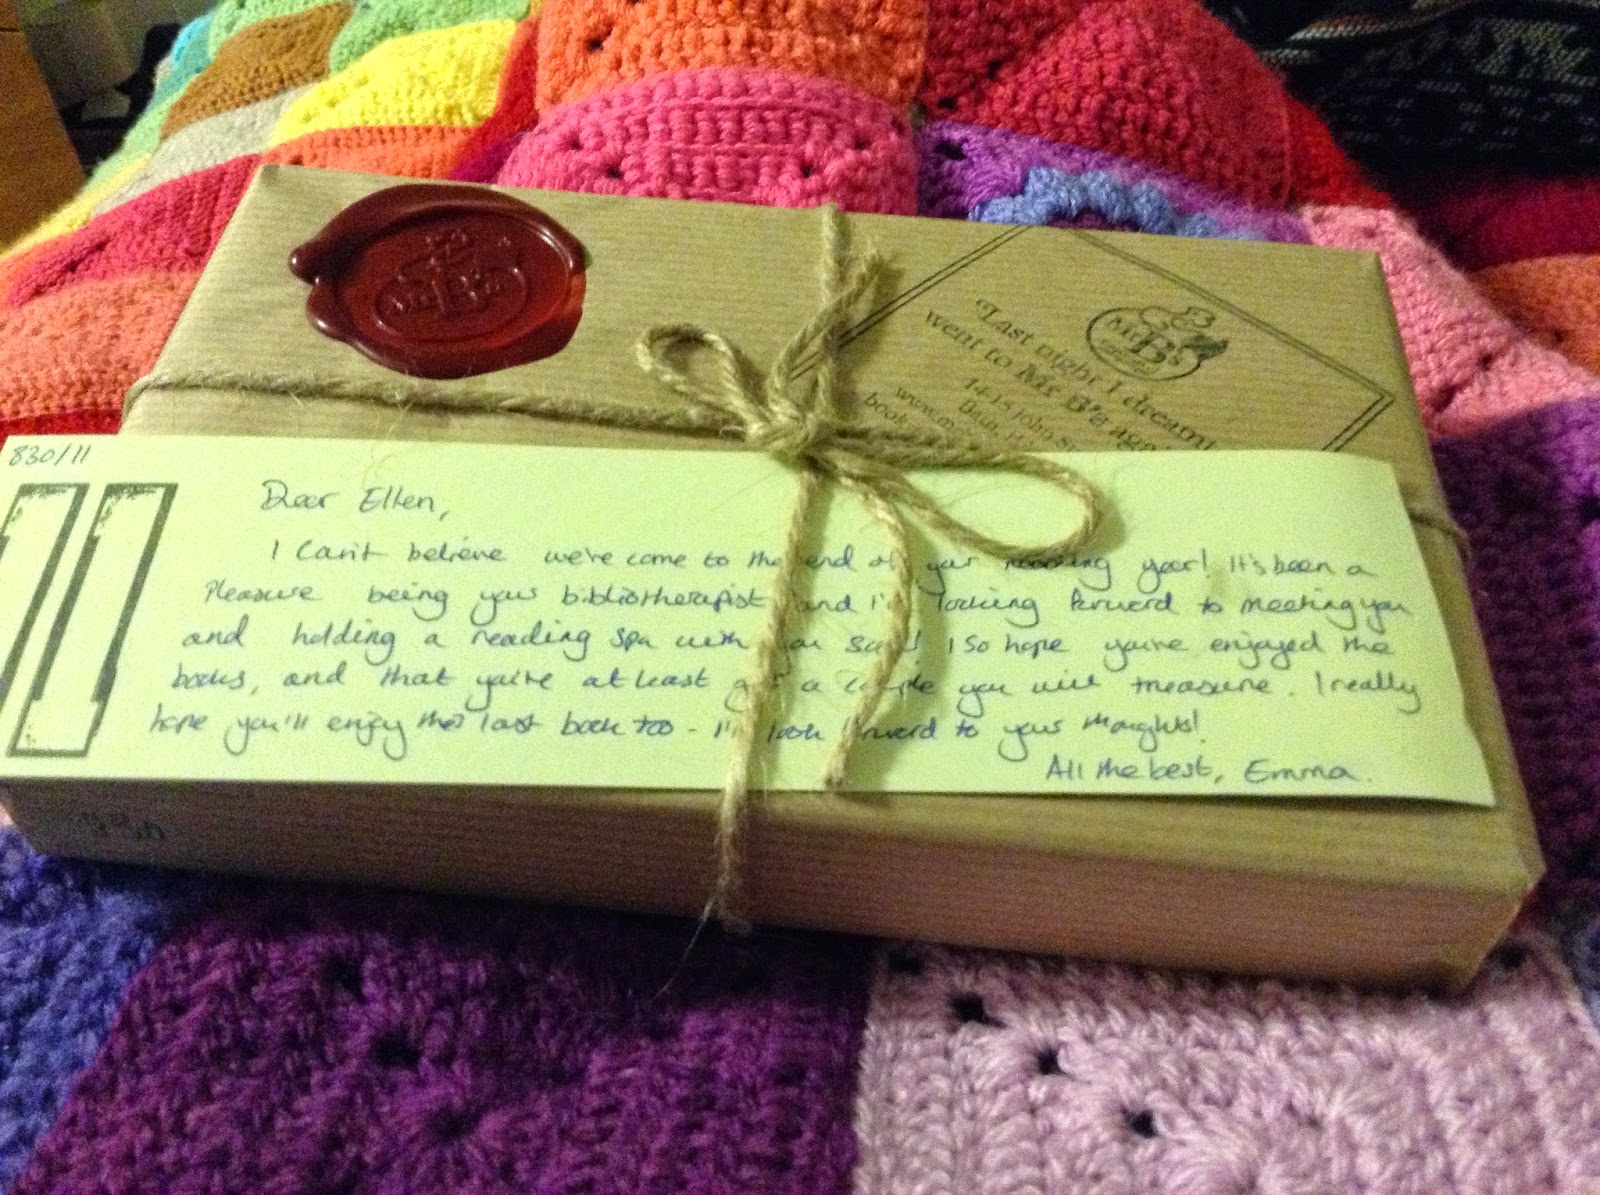 Mr B's
"Last night I dreamt
went to Mr B's aga
14-15 John S
www.m
book
830/11
11
Dear Ellen,
I can't believe we're come to the end of your reading year! It's been a
pleasure being your bibliotherapist and I'm looking forward to meeting you
and holding a reading spa with you soon! I so hope you've enjoyed the
books, and that you've at least got a couple you will treasure. I really
hope you'll enjoy this last book too - I'll look forward to your thoughts!
All the best, Emma.